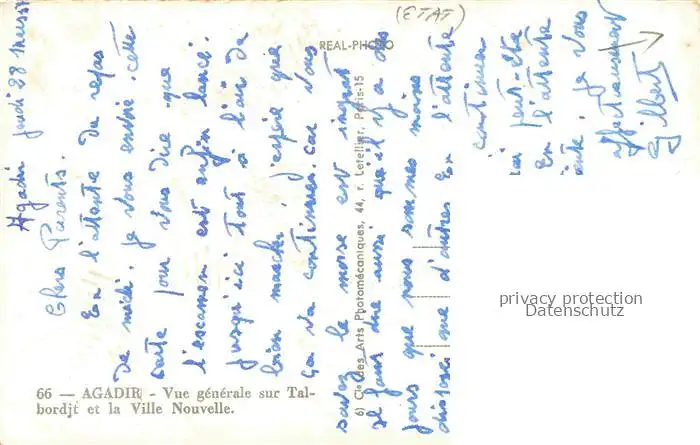 Agadir jeudi 28 mars 57
Chers Parents.
En l'attente du repas
de midi. je vous envoie cette
carte pour vous dire que
l'escamen est enfin lancé.
jusqu'ici tout à l'air de
bien marcher j'espère que
ça va continuer. car vous
savez le morse est ingrat
il faut dire aussi qu'il y a des
jours que nous sommes moins
disposé que d'autres En l'attente
(ETAT)
continuer
peut-être
En l'attente
je vous
affectueusement
Gilbert
REAL-PHOTO
6) Cie des Arts Photomécaniques, 44, r. Letellier, Paris-15
66 — AGADIR - Vue générale sur Tal-
bordjt et la Ville Nouvelle.
privacy protection
Datenschutz